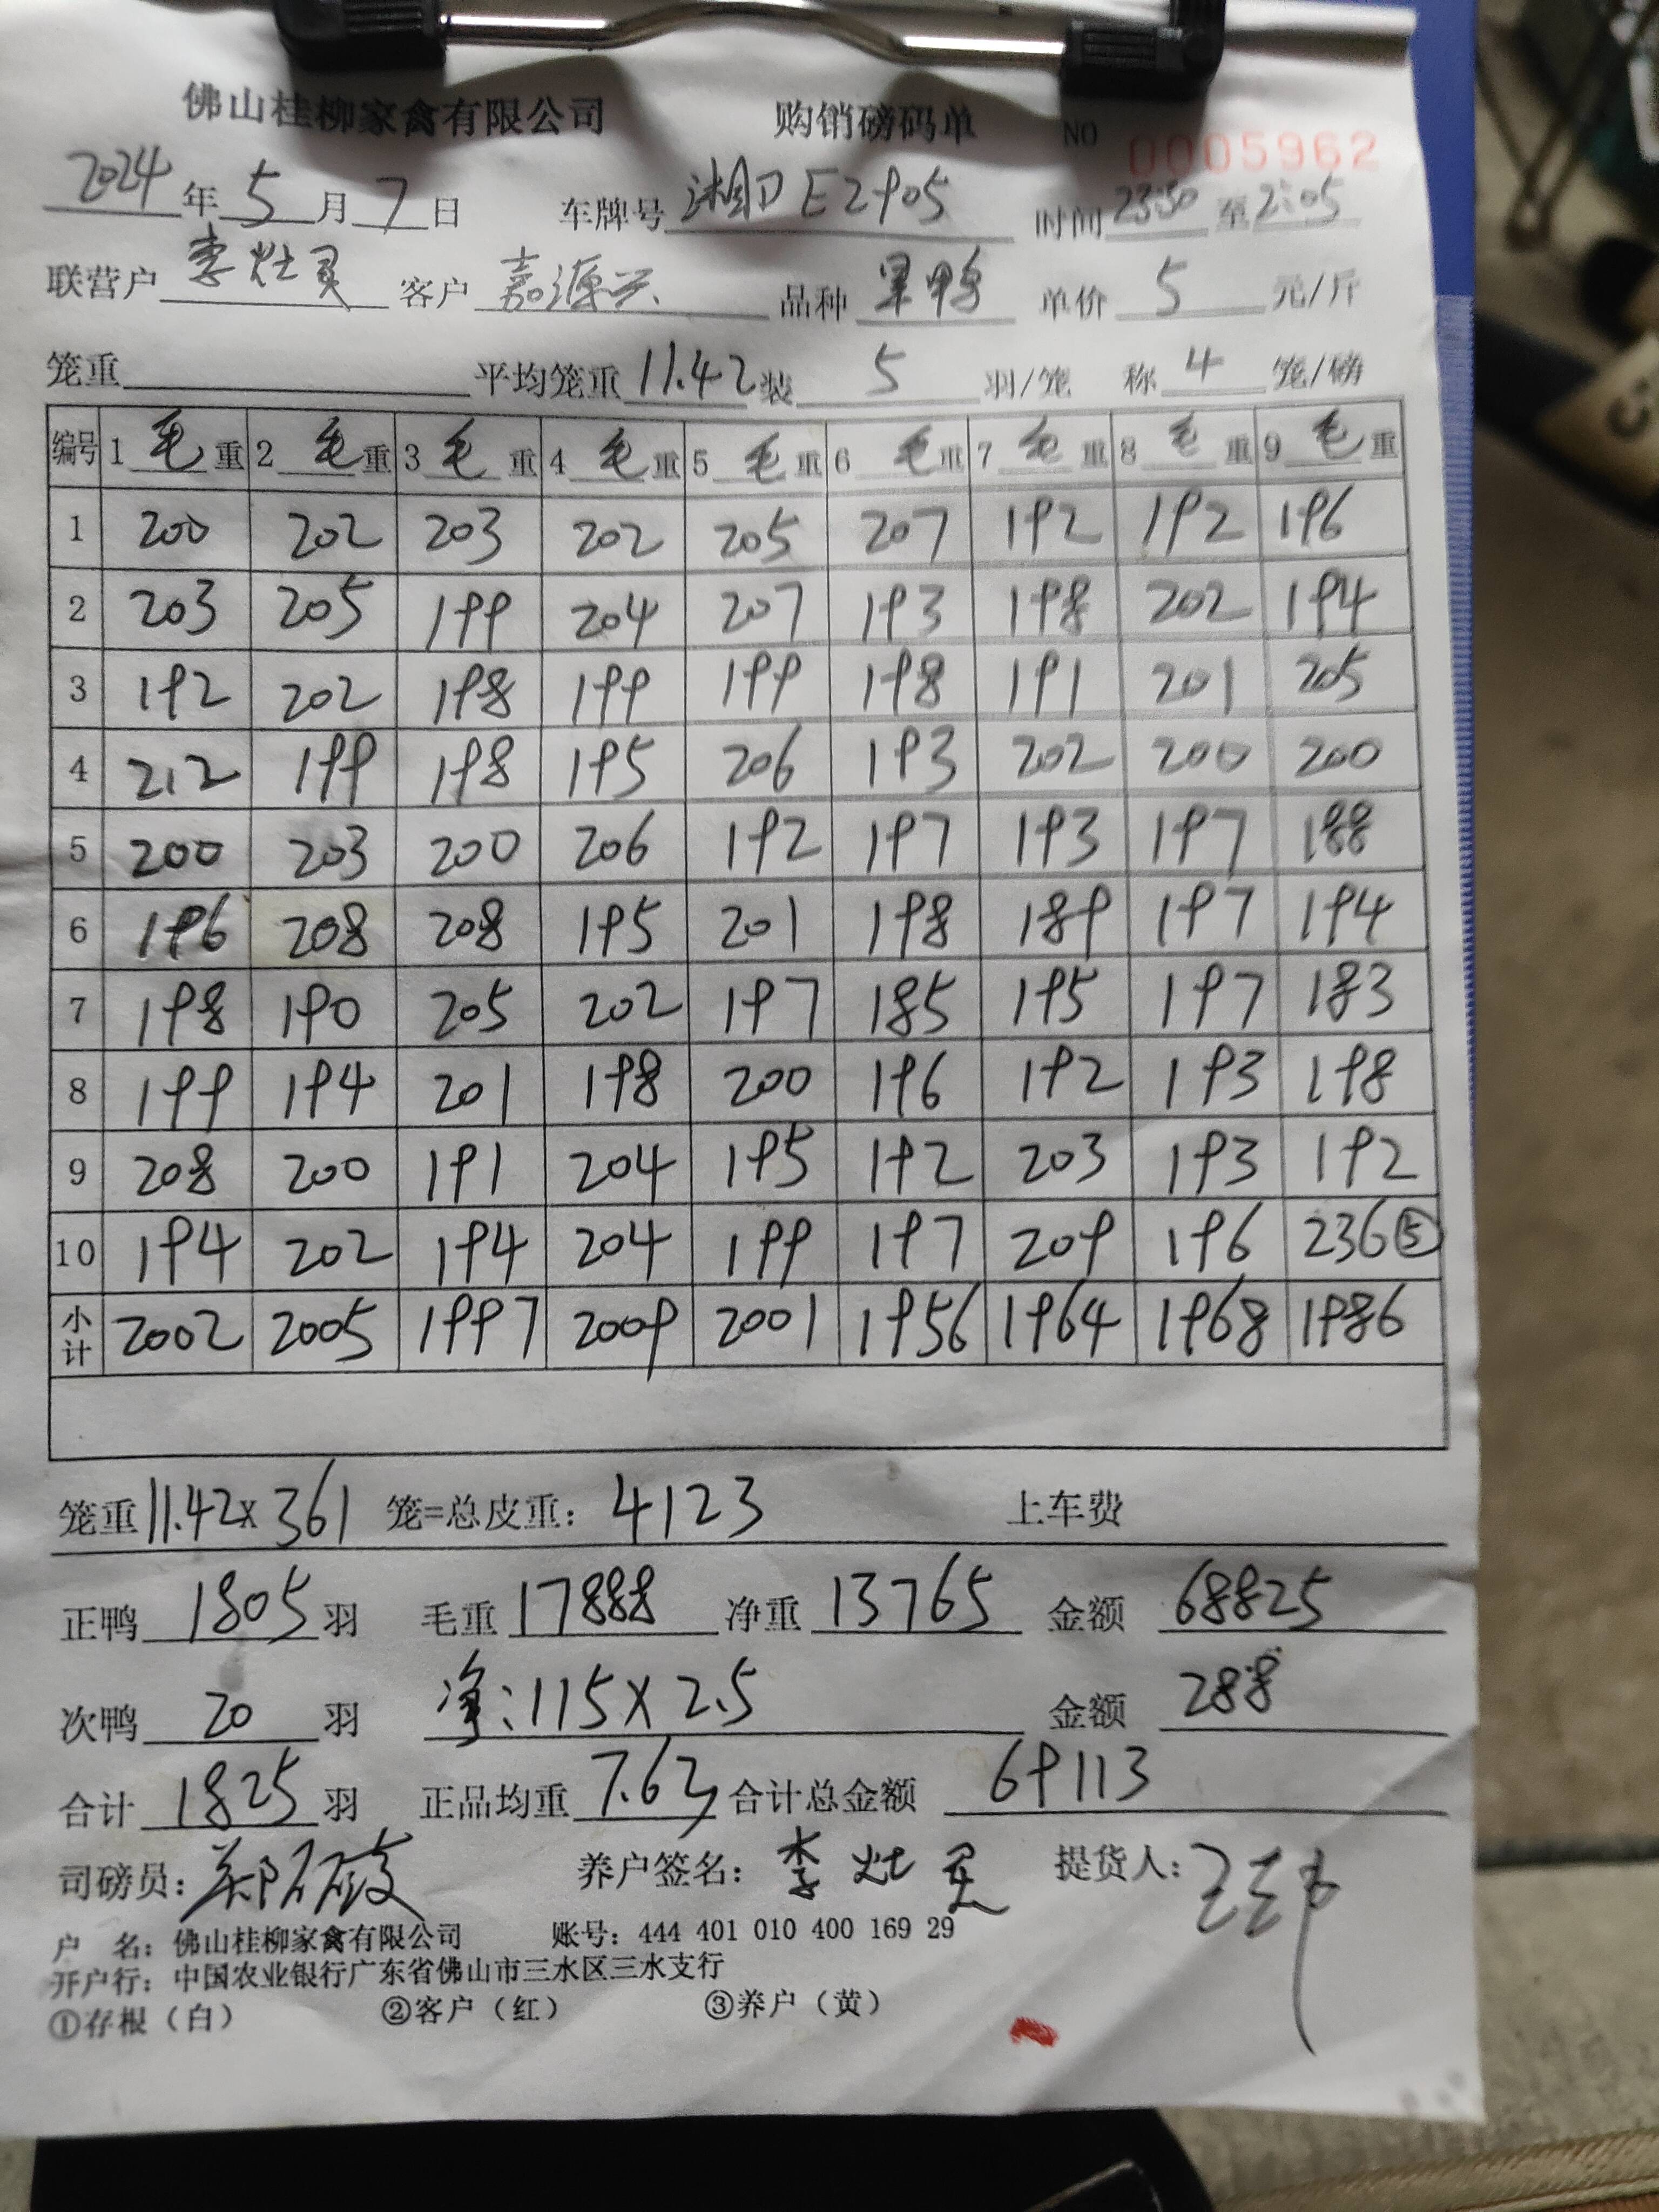 佛山桂柳家禽有限公司 购销磅码单 NO 0005962
2024年5月7日 车牌号 湘D E2905 时间 23:50 至 2:05
联营户 李灶 客户 嘉源兴 品种 鸭 单价 5 元/斤
笼重 平均笼重 11.42 装 5 羽/笼 称 4 笼/磅
编号 1 毛重 2 毛重 3 毛重 4 毛重 5 毛重 6 毛重 7 毛重 8 毛重 9 毛重
1 200 202 203 202 205 207 192 192 196
2 203 205 199 204 207 193 198 202 194
3 192 202 198 199 199 198 191 201 205
4 212 199 198 195 206 193 202 200 200
5 200 203 200 206 192 197 193 197 188
6 196 208 208 195 201 198 189 197 194
7 198 190 205 202 197 185 195 197 183
8 199 194 201 198 200 196 192 193 198
9 208 200 191 204 195 192 203 193 192
10 194 202 194 204 199 197 209 196 236⑤
小计 2002 2005 1997 2009 2001 1956 1964 1968 1986
笼重 11.42× 361 笼=总皮重: 4123 上车费
正鸭 1805 羽 毛重 17888 净重 13765 金额 68825
次鸭 20 羽 净:115×2.5 金额 288
合计 1825 羽 正品均重 7.63 合计总金额 69113
司磅员: 养户签名: 李灶 提货人:
户 名: 佛山桂柳家禽有限公司 账号: 444 401 010 400 169 29
开户行: 中国农业银行广东省佛山市三水区三水支行
①存根(白) ②客户(红) ③养户(黄)